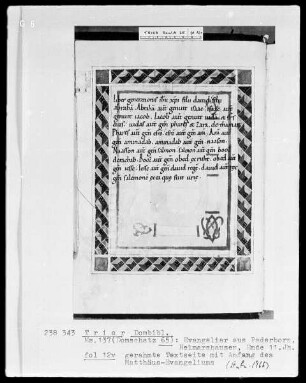 liber generationis ihu xpi filii dauid filii
abraha. Abraha aut genuit isaac. Isaac aut
genuit iacob. Iacob aut genuit iuda & fr̄s
eius. Iudas aut gen phares & zara de thamar.
Phares aut gen esr̄o. esro aut gen arā. Arā aut
gen aminadab. aminadab aut gen naasson.
Naasson aut gen salmon. Salmon aut gen booz
de rachab. Booz aut gen obed ex ruth. obed aut
gen iesse. iesse aut gen dauid rege. dauid aut rex
gen salomone ex ea que fuit urie.
238 343 Trier Dombibl.
Hs. 137 (Domschatz 68): Evangeliar aus Paderborn,
Helmarshausen, Ende 11. Jh.
fol 12v gerahmte Textseite mit Anfang des
Matthäus-Evangeliums